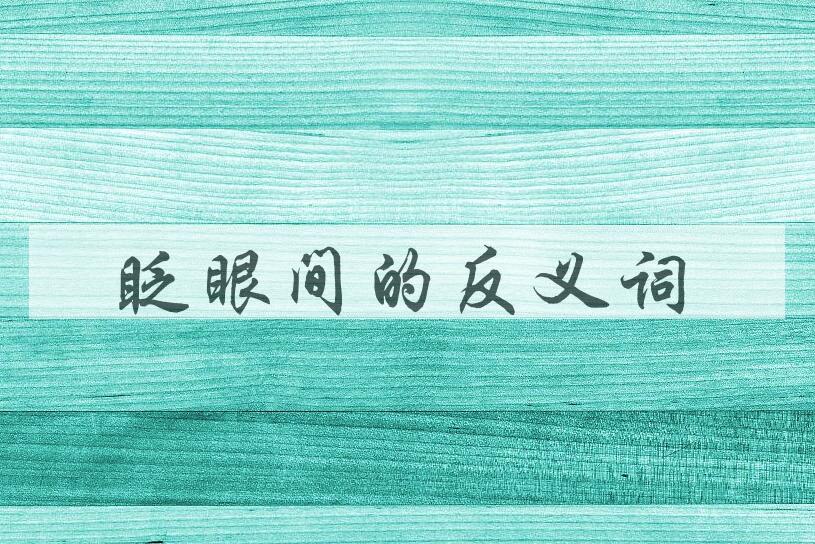 眨眼间的反义词